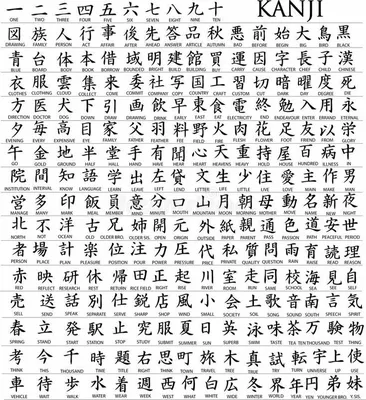 一 二 三 四 五 六 七 八 九 十 KANJI
ONE TWO THREE FOUR FIVE SIX SEVEN EIGHT NINE TEN
図 族 人 行 事 後 先 答 品 秋 悪 前 始 大 鳥 黒
DRAWING FAMILY PERSON ACT AFFAIR AFTER AHEAD ANSWER ARTICLE AUTUMN BAD BEFORE BEGIN BIG BIRD BLACK
青 台 体 本 借 域 明 建 館 買 運 因 字 長 子 漢
BLUE BOARD BODY BOOK BORROW BRIGHT BUILD BUILDING BUY CARRY CAUSE CHARACTER CHIEF CHILD CHINESE
衣 服 雲 集 来 委 社 写 国 工 習 切 暗 曜 度 死
CLOTHES CLOTHING CLOUD COLLECT COME COMMIT COMPANY COPY COUNTRY CRAFT CUT DARK
方 医 犬 下 引 画 飲 早 東 食 電 終 勉 入 用 永
DIRECTION DOCTOR DOG DOWN DRAW DRAWING DRINK EARLY EAST EAT ELECTRICITY END ENDEAVOUR ENTER ETERNAL
夕 毎 高 目 家 父 羽 料 野 火 肉 花 足 友 以
EVENING EVERY EXPENSIVE EYE FAMILY FATHER FEATHER FEE FIELD FIRE FLESH FLOWER FOOT FRIEND FROM
金 地 半 堂 手 有 聞 心 天 重 持 屋 百 病 中
GO GOLD GROUND HALF HALL HAND HAVE HEAR HEART HEAVENS HEAVY HOLD HOUSE HUNDRED ILLNESS IN
院 間 知 語 学 出 左 貸 文 生 少 住 愛 主 作 男
INSTITUTION INTERVAL KNOW LANGUAGE LEARN LEAVE LEFT LEND LETTER LIFE LITTLE LIVE LOVE MAIN MAKE MAN
営 多 印 飯 員 意 分 口 山 月 朝 母 動 名 新 夜
MANAGE MANY MARK MEAL MEMBER MIND MINUTE MOUTH MOUNTAIN MOON MORNING MOTHER MOVE NAME NEW NIGHT
北 不 洋 古 兄 姉 開 元 外 紙 親 通 色 道 安 世
NORTH NOT OCEAN OLD OLDER BRO. OLDER SIS. OPEN ORIGIN OUTSIDE PAPER PARENT PASS PASSION PATH PEACEFUL PERIOD
者 場 計 楽 位 注 力 圧 代 私 質 問 雨 育 読 理
PERSON PLACE PLAN PLEASURE POSITION POUR POWER PRESSURE PRICE PRIVATE QUALITY QUESTION RAIN RAISE READ REASON
赤 映 研 休 帰 田 正 起 川 室 走 同 校 海 見 自
RED REFLECT RESEARCH REST RETURN RICE FIELD RIGHT RISE RIVER ROOM RUN SAME SCHOOL SEA SEE SELF
売 送 話 別 仕 鋭 店 風 小 会 土 歌 音 南 言 気
SELL SEND SPEAK SEPARATE SERVE SHARP SHOP WIND SMALL SOCIETY SOIL SONG SOUND SOUTH SPEECH SPIRIT
春 立 発 駅 止 究 服 夏 日 英 泳 味 茶 万 験 物
SPRING STAND START STATION STOP STUDY SUBMIT SUMMER SUN SUPERB SWIM TASTE TEA TEN THOUSAND TEST THING
考 今 千 時 題 右 思 町 旅 木 真 試 転 宇 上 使
THINK THIS THOUSAND TIME TITLE RIGHT THOUGHT TOWN TRAVEL TREE TRUE TRY TURN UNIVERSE UP USE
車 待 歩 水 着 週 西 何 白 広 冬 世 界 年 円 弟 妹
VEHICLE WAIT WALK WATER WEAR WEEK WEST WHAT WHITE WIDE WINTER WORLD YEAR YEN YOUNGER BRO. Y. SIS.